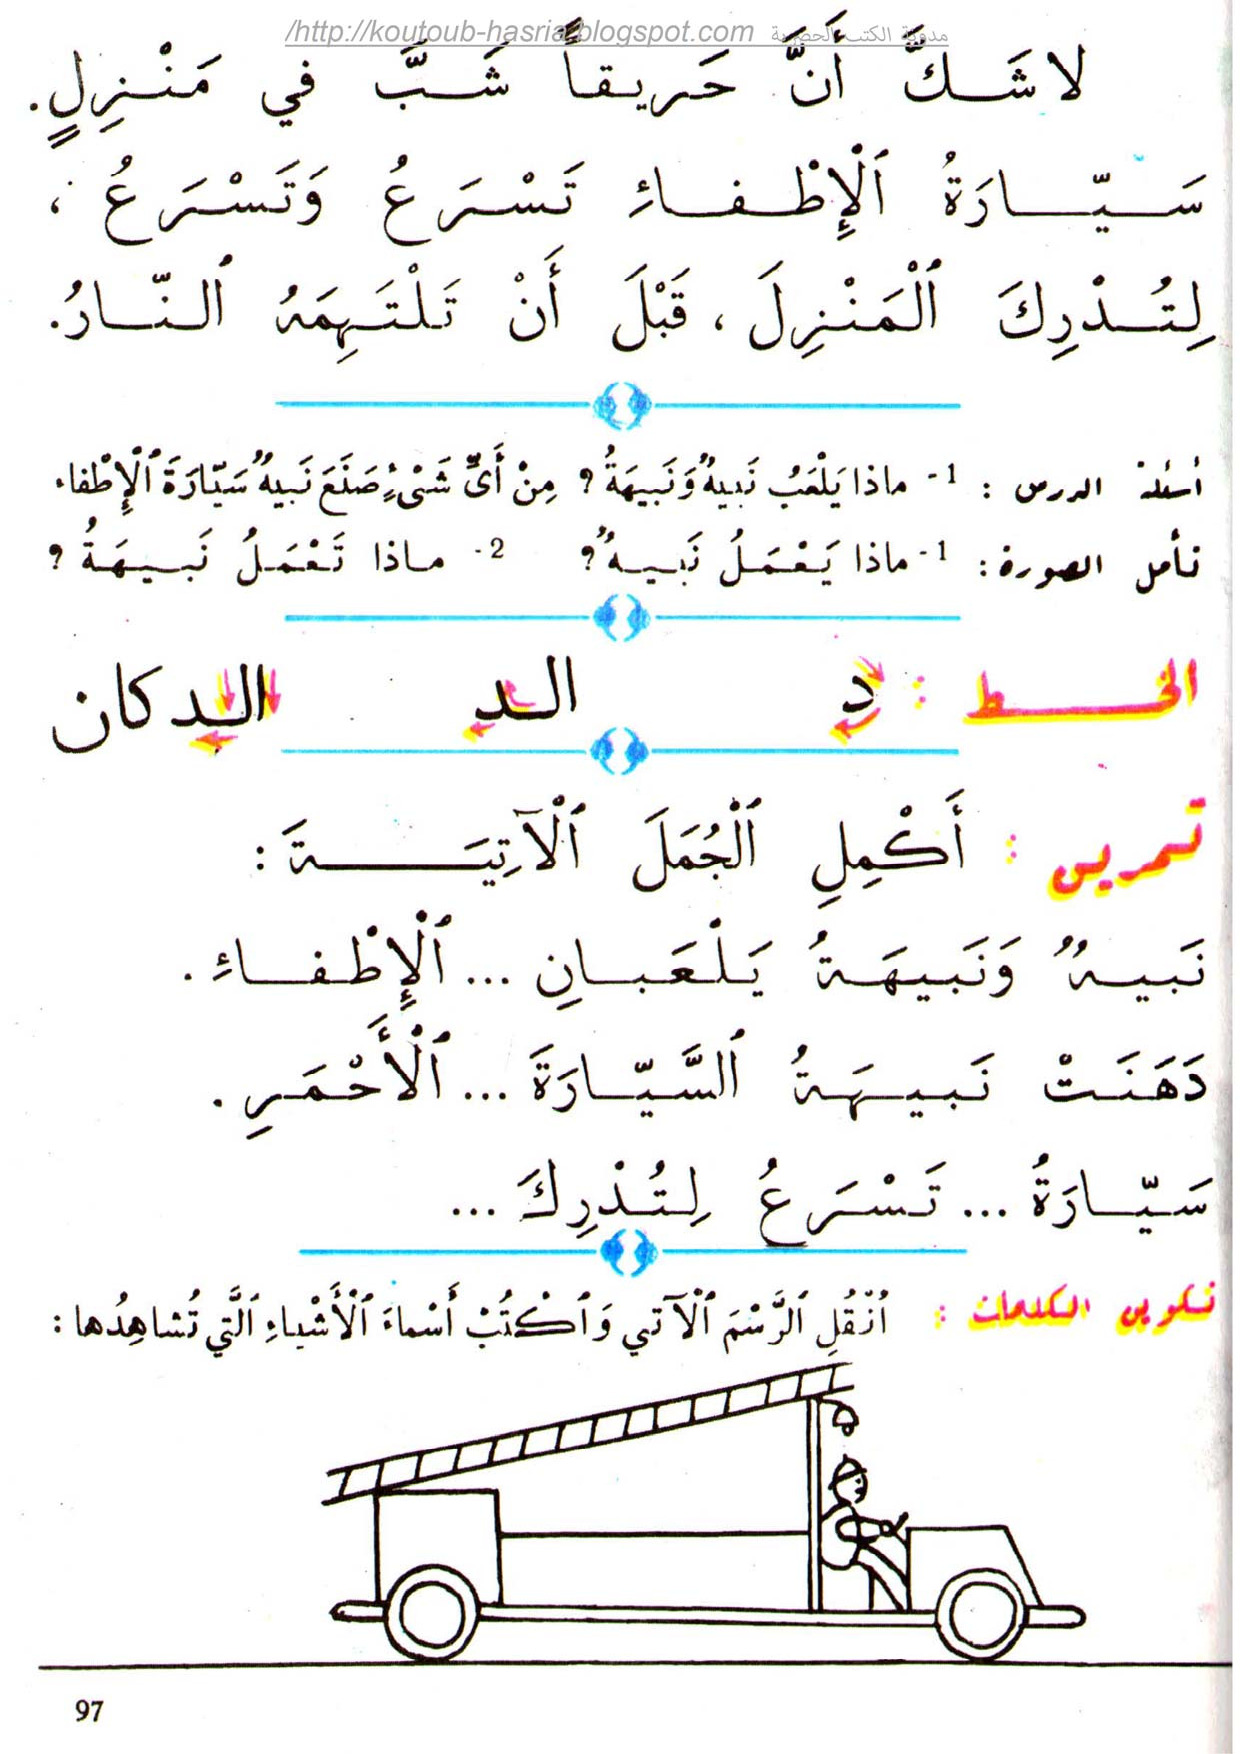 http://koutoub-hasria.blogspot.com/ مدونة الكتب الحصرية
لا شَكَّ أَنَّ حَريقاً شَبَّ في مَنْزِلٍ.
سَيّارَةُ ٱلْإِطْفاءِ تَسْرَعُ وَتَسْرَعُ ،
لِتُدْرِكَ ٱلْمَنْزِلَ ، قَبْلَ أَنْ تَلْتَهِمَهُ ٱلنّارُ.
أسئلة الدرس : 1- ماذا يَلْعَبُ نَبيهٌ وَنَبيهَةُ ? مِنْ أَيِّ شَيْءٍ صَنَعَ نَبيهٌ سَيّارَةَ ٱلْإِطْفاء
تأمل الصورة : 1- ماذا يَعْمَلُ نَبيهٌ ? 2- ماذا تَعْمَلُ نَبيهَةُ ?
الخط : د الد الدكان
تمرين : أَكْمِلِ ٱلْجُمَلَ ٱلْآتِيَةَ :
نَبيهٌ وَنَبيهَةُ يَلْعَبانِ ... ٱلْإِطْفاءِ .
دَهَنَتْ نَبيهَةُ ٱلسَّيّارَةَ ... ٱلْأَحْمَرِ .
سَيّارَةُ ... تَسْرَعُ لِتُدْرِكَ ...
تكوين الكلمات : اُنْقُلِ ٱلرَّسْمَ ٱلْآتي وَٱكْتُبْ أَسْماءَ ٱلْأَشْياءِ ٱلَّتي تُشاهِدُها :
97